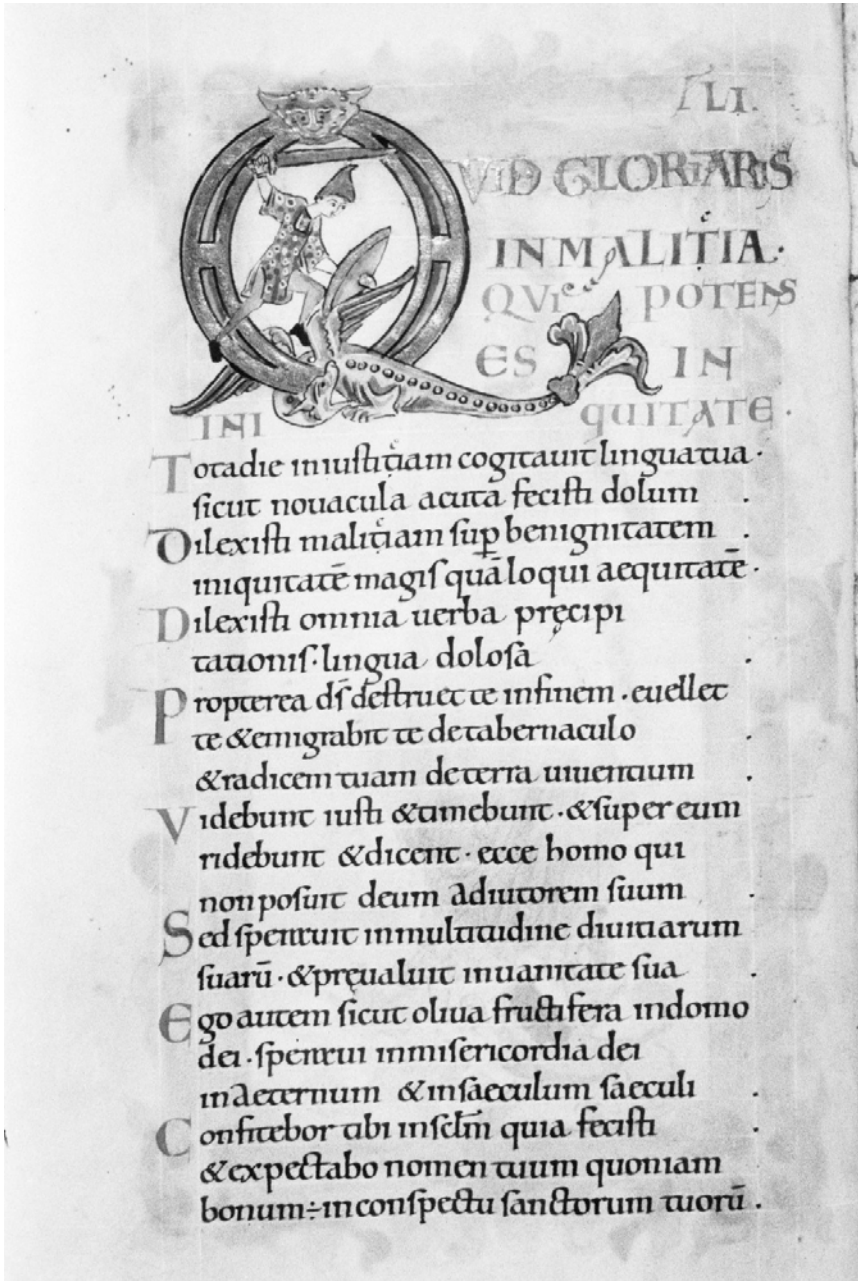 LI.
QVID GLORIARIS
IN MALITIA.
QVI POTENS
ES IN
INI QUITATE.
Tota die iniustitiam cogitauit lingua tua.
sicut nouacula acuta fecisti dolum .
Dilexisti malitiam sup̄ benignitatem .
iniquitatē magis quā loqui aequitatē.
Dilexisti omnia uerba pręcipi
tationis. lingua dolosa .
Propterea d̄s destruet te in finem. euellet
te & emigrabit te de tabernaculo .
& radicem tuam de terra uiuentium .
Videbunt iusti & timebunt. & super eum
ridebunt & dicent. ecce homo qui
non posuit deum adiutorem suum .
Sed sperauit in multitudine diuitiarum
suarū. & pręualuit in uanitate sua .
Ego autem sicut oliua fructifera in domo
dei. speraui in misericordia dei
in aeternum & in saeculum saeculi .
Confitebor tibi in sclm̄ quia fecisti .
& expectabo nomen tuum quoniam
bonum ÷ in conspectu sanctorum tuorū.